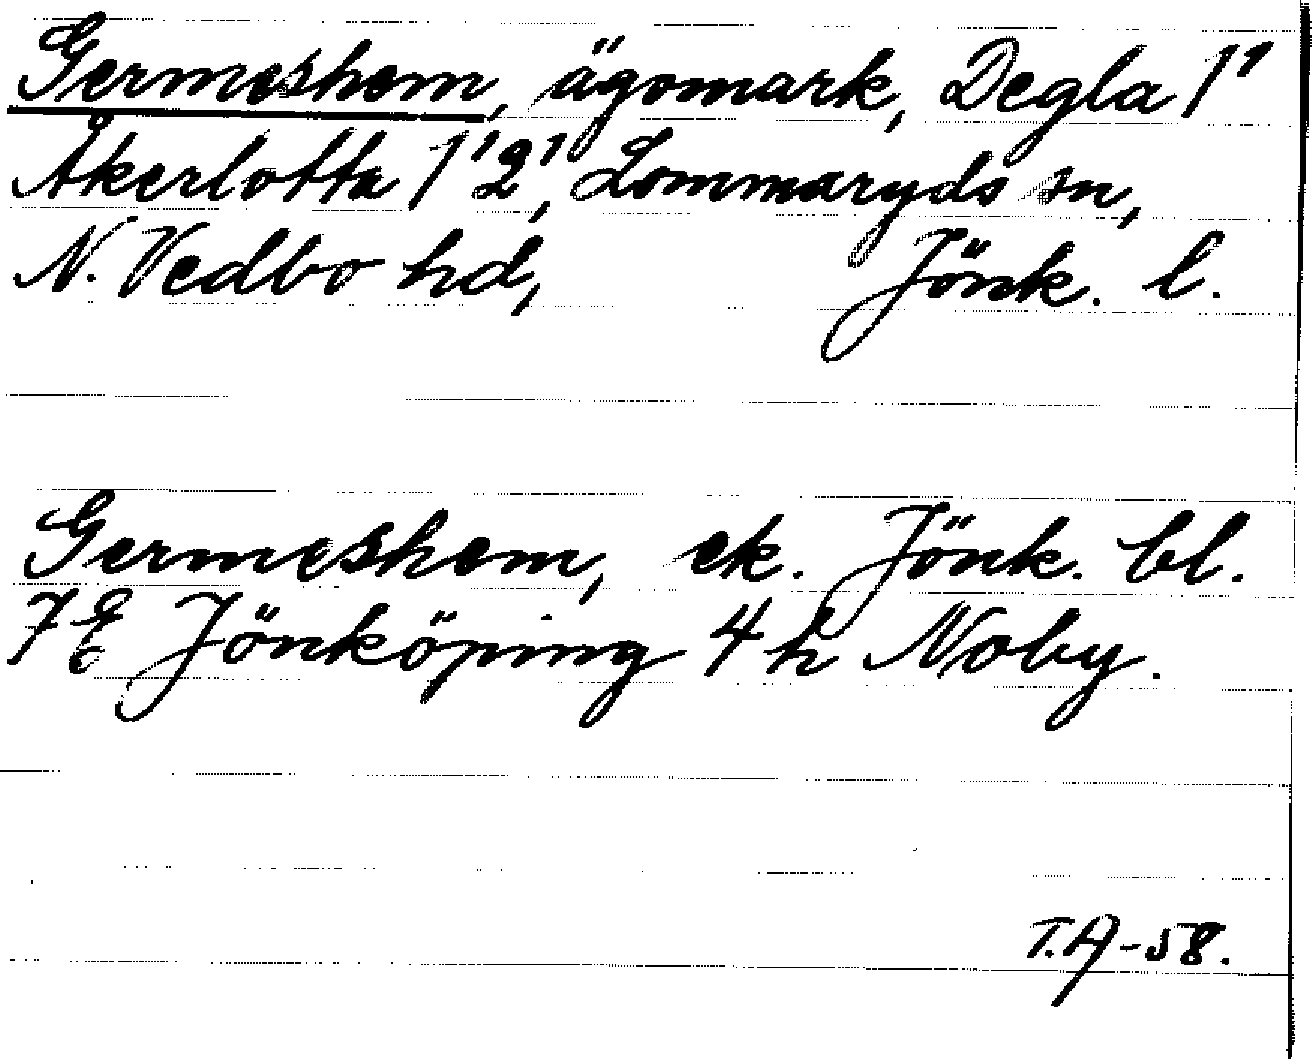 Germeshem, ägomark, Degla 1'
Åkerlotta 1'2', Lommaryds sn,
N. Vedbo hd, Jönk. l.
Germeshem, ek. Jönk. bl.
7E Jönköping 4h Noby.
T.A-58.